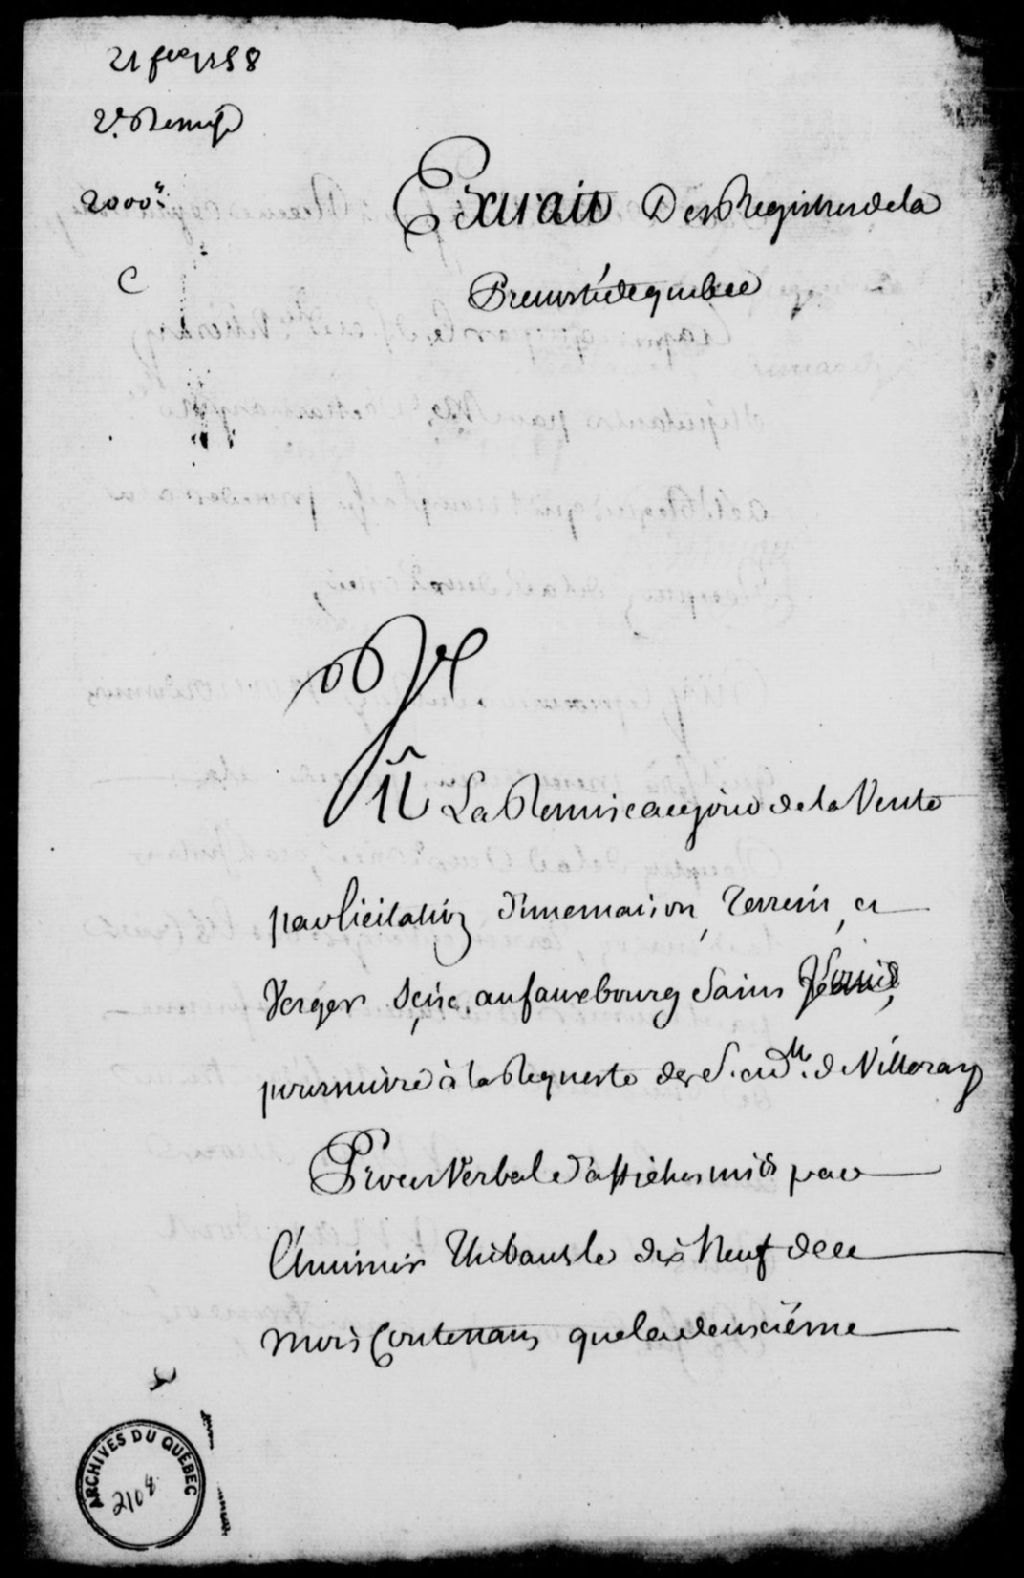 21 fev 1758
2e Remise
2000lt
C
Extrait Des Registres de la
Prevosté de quebec
Vû La Remise au jour de la Vente
par licitation d'une maison, terrein, et
Verger seise, au fauxbourg Saint
poursuivie à la Requeste des S. et dlle de Villeray
Proces Verbal d'affiches mis par
l'huissier Thibault le dix Neuf de ce
mois Contenant que la deuxiéme
ARCHIVES DU QUÉBEC
2108